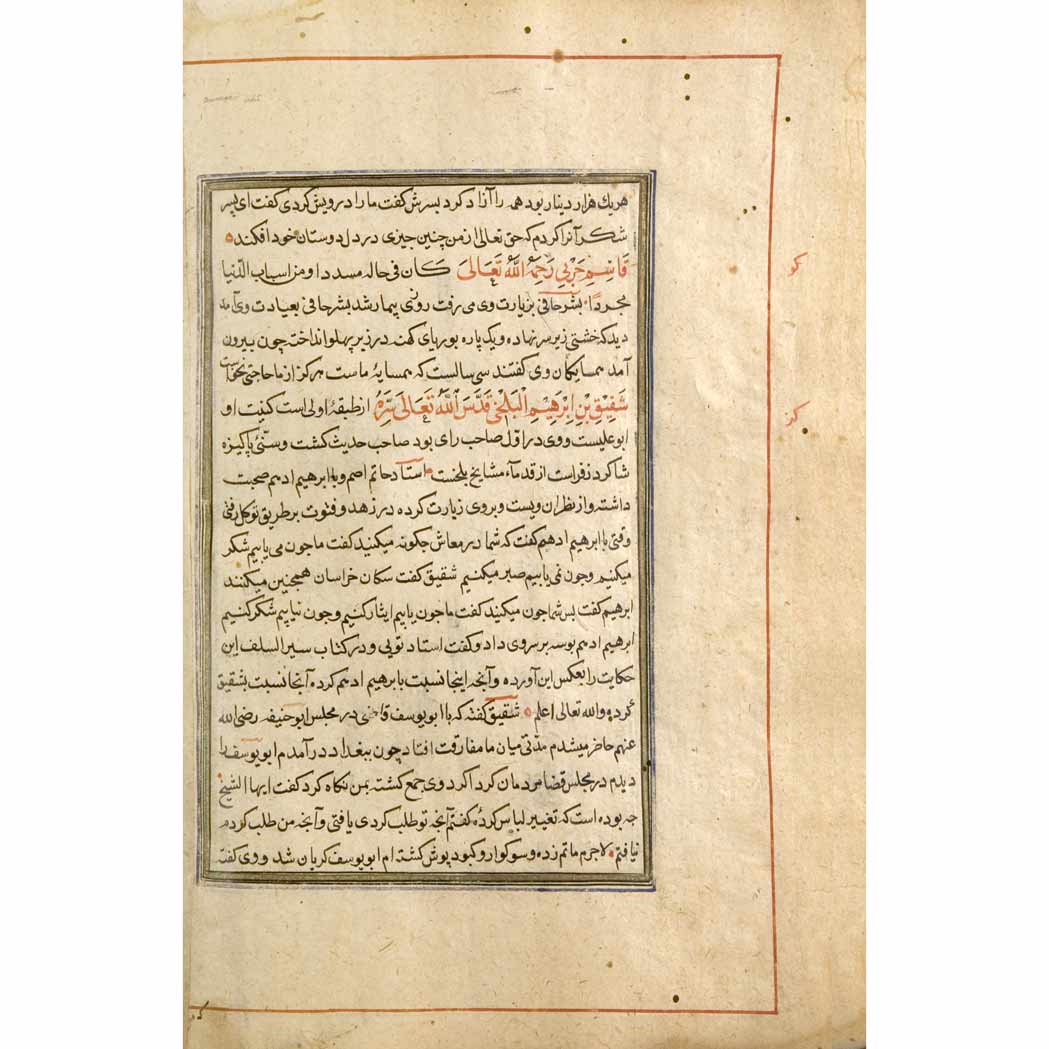 هریك هزار دینار بود همه را آزاد کرد بسرش کفت ما را درویش کردی کفت ای پسر
شکر آنرا کردم که حق تعالی از من چنین جیزی در دل دوستان خود افکند
قاسم حربی رحمه الله تعالی کان فی حاله مسددا ومن اسباب الدنیا
مجردا بشر حافی بزیارت وی می رفت روزی بیمار شد بشر حافی بعیادت وی آمد
دید که خشتی زیر سر نهاده ویک پاره بوریای کهنه در زیر پهلو انداخته چون بیرون
آمد همسایکان وی کفتند سی سالست که همسایۀ ماست هرکز از ما حاجتی نخواست
شقیق بن ابرهیم البلخی قدس الله تعالی سره از طبقۀ اولی است کنیت او
ابو علیست ووی در اول صاحب رای بود صاحب حدیث کشت وسنّیٔ پاکیزه
شاکرد زفر است از قدماء مشایخ بلخست استاد حاتم اصم وبا ابرهیم ادهم صحبت
داشته واز نظران ویست و بروی زیارت کرده در زهد و فتوت بر طریق توکل رفتی
وقتی با ابرهیم ادهم کفت که شما در معاش جکونه میکنید کفت ما جون می یابیم شکر
میکنیم وجون نمی یابیم صبر میکنیم شقیق کفت سکان خراسان همجنین میکنند
ابرهیم کفت بس شما جون میکنید کفت ما جون یابیم ایثار کنیم و جون نیابیم شکر کنیم
ابرهیم ادهم بوسه بر سروی داد و کفت استاد تویی و در کتاب سیر السلف این
حکایت را بعکس این آورده وآنجه اینجا نسبت با برهیم ادهم کرده آنجا نسبت بشقیق
کرده والله تعالی اعلم شقیق کفته که با ابو یوسف قاضی در مجلس ابو حنیفه رضی الله
عنهم حاضر میشدم مدتی میان ما مفارقت افتاد چون ببغداد در آمدم ابو یوسف را
دیدم در مجلس قضا مردمان کرداکرد وی جمع کشته بمن نکاه کرد کفت ایها الشیخ
جه بوده است که تغییر لباس کردۀ کفتم آنجه تو طلب کردی یافتی وآنجه من طلب کردم
نیافتم لاجرم ماتم زده وسوکوار وکبود پوش کشته ام ابو یوسف کریان شد ووی کفته
کو
کز